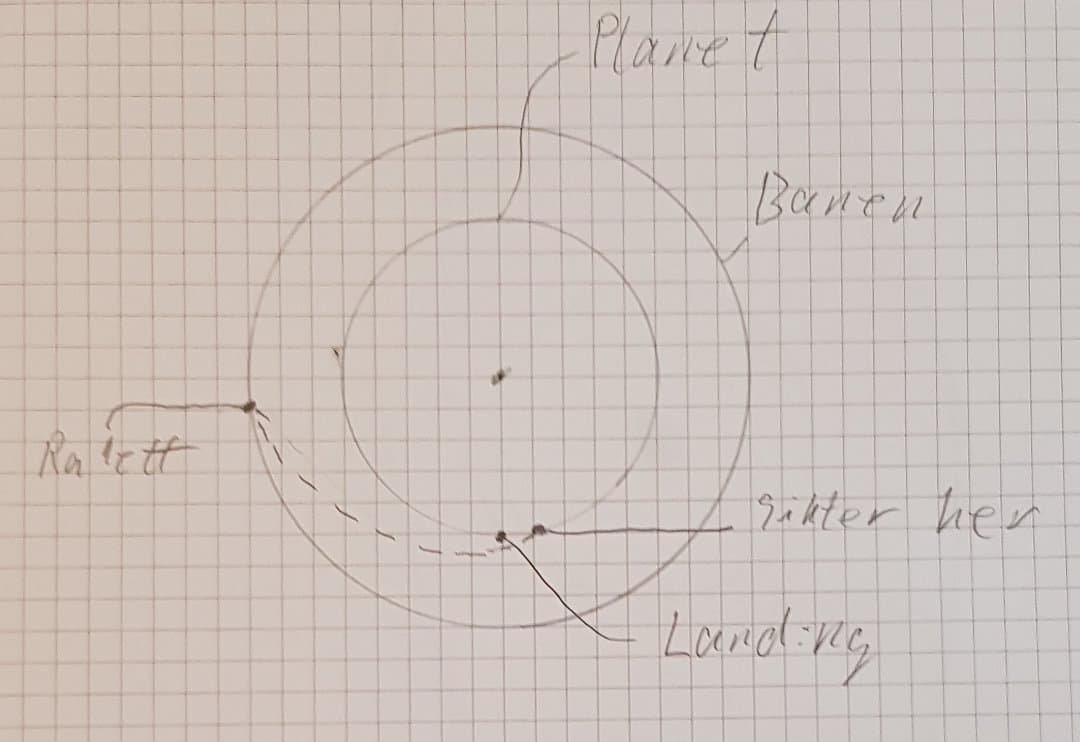 Planet
Banen
Rakett
Sikter her
Landing